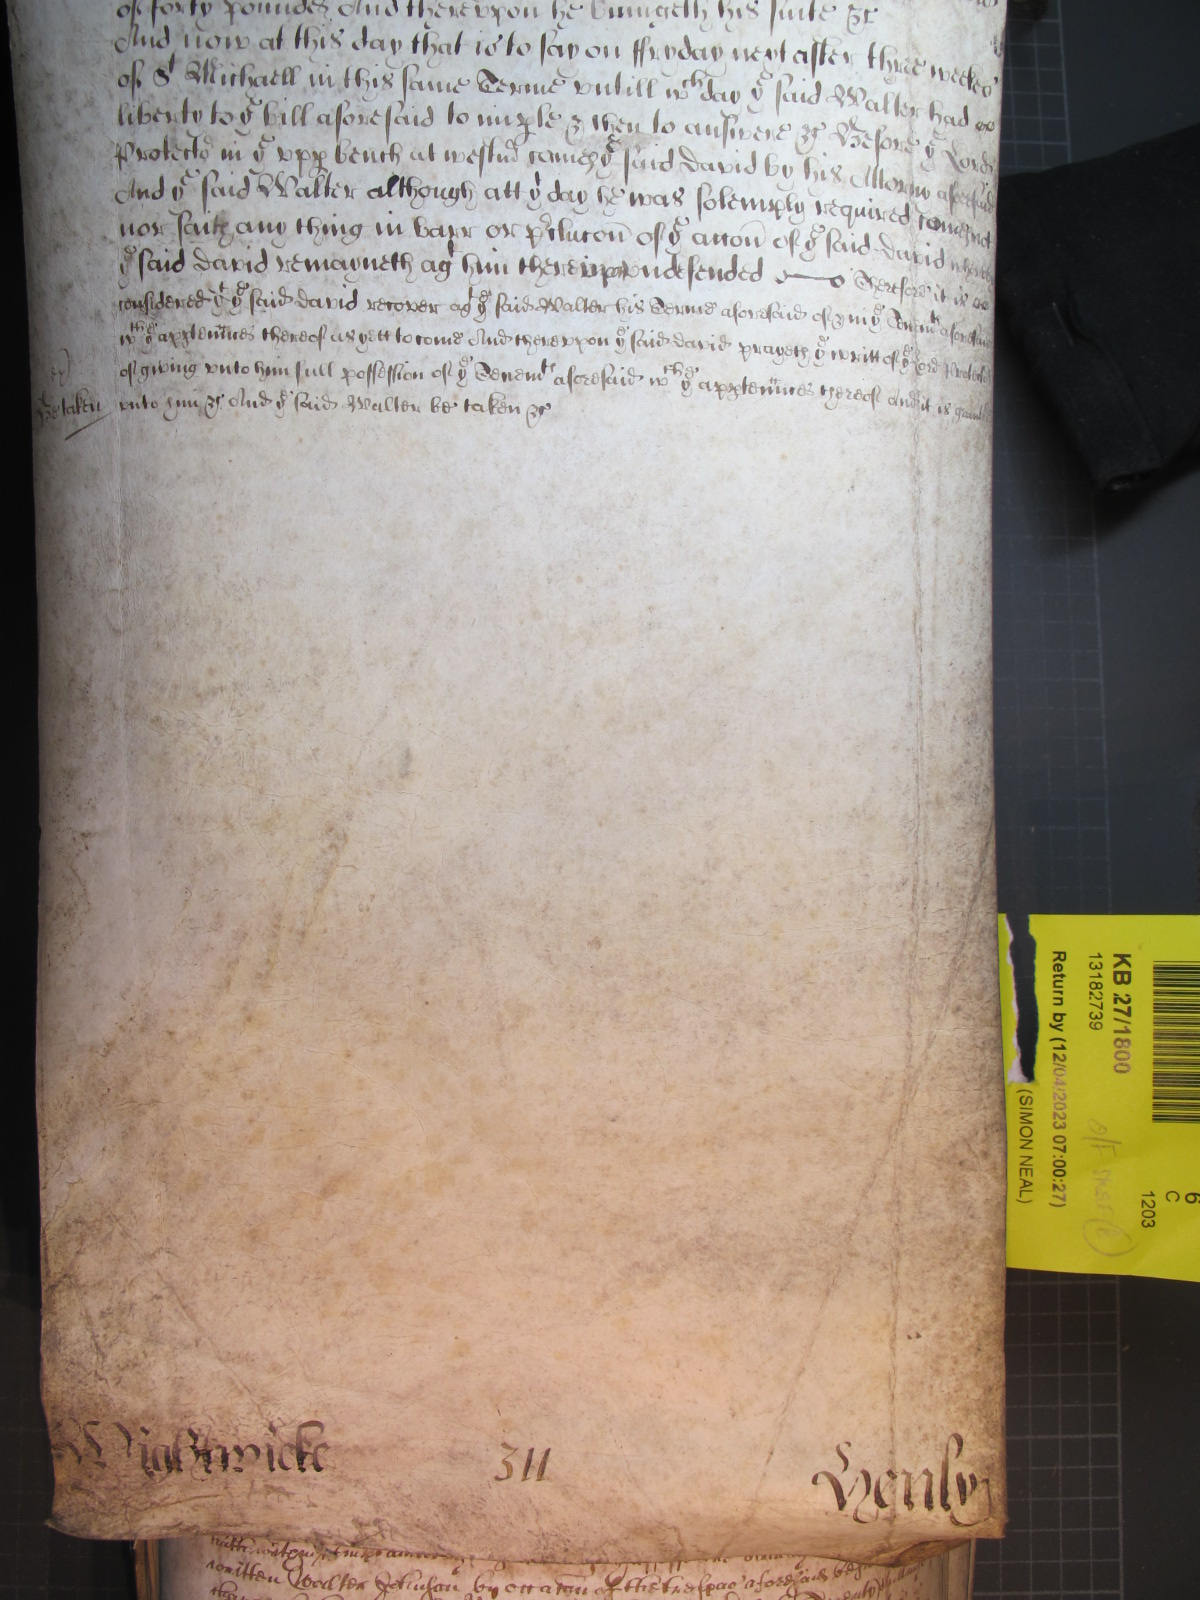 of forty poundes And therevpon he bringeth his suite &c
And now at this day that is to say on ffryday next after three weekes
of St Michaell in this same Terme vntill wch day ye said Walter had
liberty to ye bill aforesaid to imple & then to answere &c Before ye Lord
Protector in ye vpp bench at westmr cometh ye said David by his Attorny aforesaid
And ye said Walter although att yt day he was solemply required cometh not
nor saith any thing in barr or preclucon of ye accon of ye said David whereby
ye said david remayneth agt him therevpon vndefended Therefore it is
considered yt ye said david recover agt ye said Walter his Terme aforesaid of & in ye Tenemts aforesaid
wth ye apptennces thereof as yett to come And therevpon ye said david prayeth ye writt of ye Lord Protector
of giving vnto him full possession of ye Tenemts aforesaid wth ye apptennces thereof And it is graunted
vnto him &c And ye said Walter be taken &c
Be taken
Wightwicke
311
Henly
written Walter Johnson by occacon of the trespas aforesaid
KB 27/1800
13182739
Return by (12/04/2023 07:00:27)
(SIMON NEAL)
6
C
1203